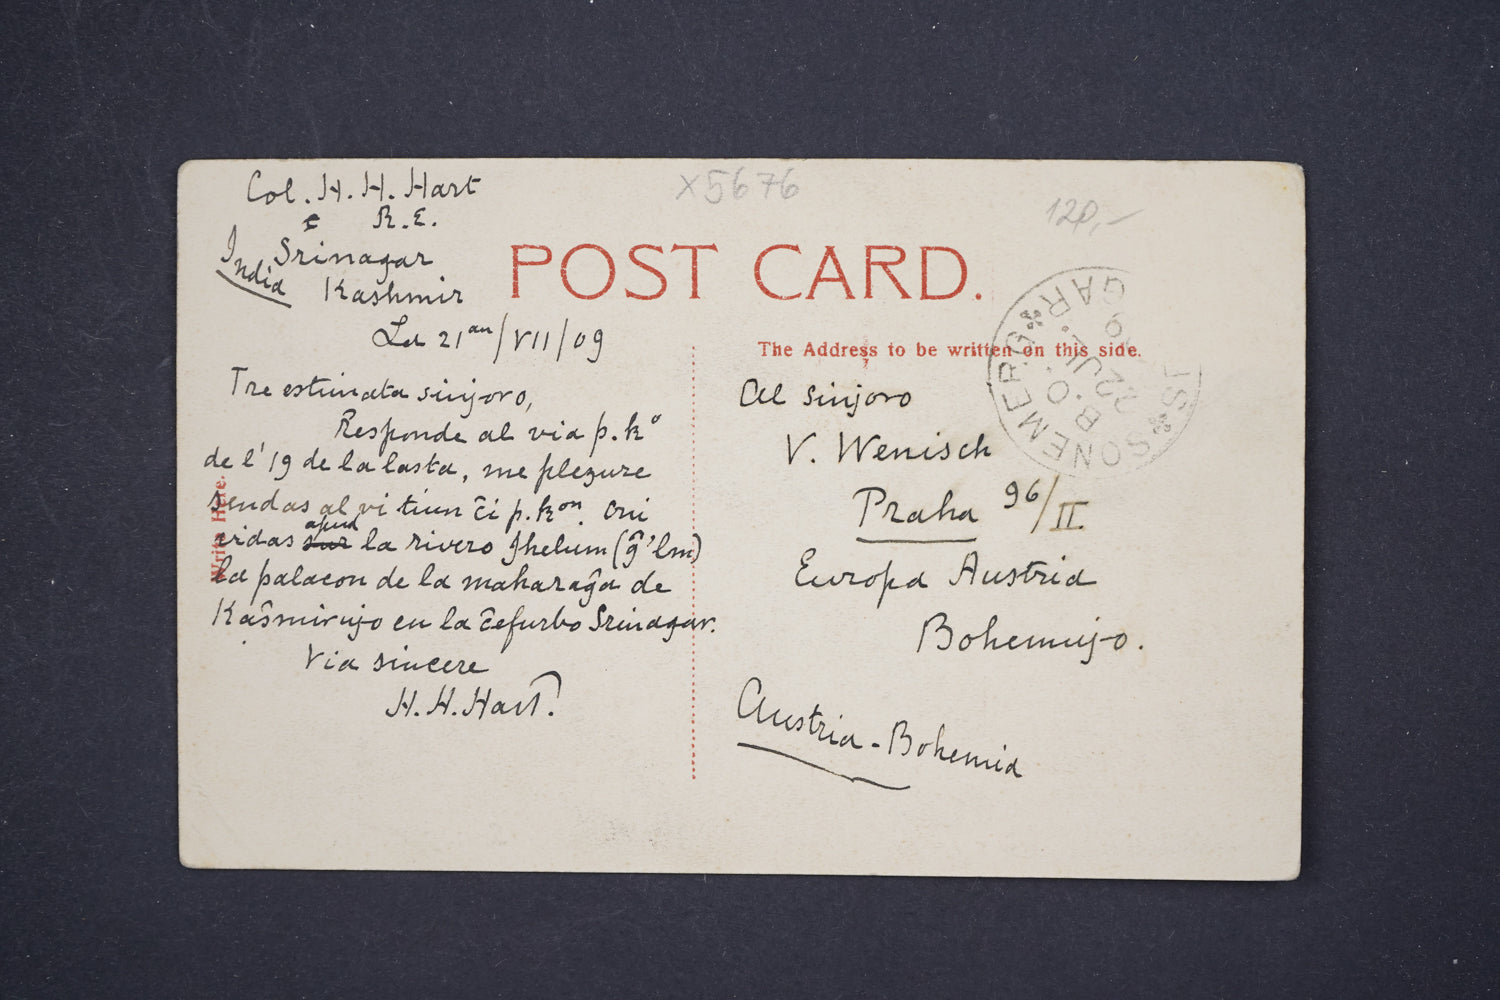 Col. H. H. Hart
R.E.
Srinagar
India
Kashmir
La 21an/VII/09
Tre estimata sinjoro,
Responde al via p.ko
de l' 19 de la lasta, me plezure
sendas al vi tiun ĉi p.kon. Oni
vidas sur apud la rivero Jhelum (ĝ'lm)
la palacon de la maharaĝa de
Kaŝmirujo en la ĉefurbo Srinagar.
Via sincere
H. H. Hart.
Write Here.
X5676
120,-
POST CARD.
The Address to be written on this side.
Al sinjoro
V. Wenisch
Praha 96/II
Europa Austria
Bohemujo.
Austria-Bohemia
SONEMERG
B.O.
22 JL